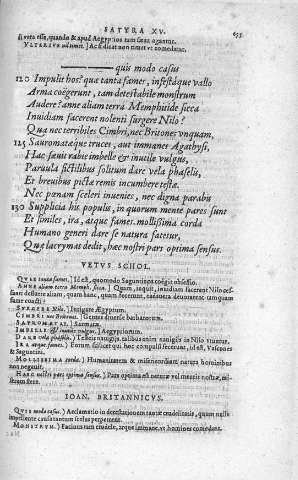 SATYRA XV. 655
di veto esse, quando & apud Aegyptios tam sæua agantur.
VLTERIVS nil timet. ) Ac si dicat non timet vt comedatur.
quis modo casus
120 Impulit hos? quæ tanta fames, infestáque vallo
Arma coëgerunt, tam detestabile monstrum
Audere? anne aliam terra Memphitide sicca
Inuidiam facerent nolenti surgere Nilo?
Qua nec terribiles Cimbri, nec Britones vnquam,
125 Sauromatæque truces, aut immanes Agathyrsi,
Hac sæuit rabie imbelle & inutile vulgus,
Paruula fictilibus solitum dare vela phaselis,
Et breuibus pictæ remis incumbere testæ.
Nec pœnam sceleri inuenies, nec digna parabis
130 Supplicia his populis, in quorum mente pares sunt
Et similes, ira, atque fames. mollissima corda
Humano generi dare se natura fatetur,
Quæ lacrymas dedit, hæc nostri pars optima sensus.
VETVS SCHOL.
QVAE tanta fames. ) Id est, quomodo Saguntinos coëgit obsessio.
ANNE aliam terra Memph. sicca. ) Quam, inquit, inuidiam facerent Nilo
SVRGERE Nilo. ) Inrigare Ægyptum.
CIMBRI nec Britones. ) Gentes diuersæ barbarorum.
SAVROMATAE. ) Sarmatæ.
IMBELLE & inutile vulgus. ) Aegyptiorum.
DARE vela phaselis. ) fictilibus nauigiis in Nilo vtuntur.
IRA atque fames. ) Eorum scilicet qui hoc compulsi fecerunt, id est, Vascones
& Saguntini.
MOLLISSIMA corda. ) Humanitatem & misericordiam natura hominibus
non negauit.
HAEC nostri pars optima sensus. ) Pars optima est naturæ vel mentis nostræ,
IOAN. BRITANNICVS.
QVIS modo casus. ) Acclamatio in detestationem tantæ crudelitatis, quum nulla
impellente causa tantum scelus perpetrent.
MONSTRVM. ) Facinus tam crudele, atque immane, vt homines comedant.